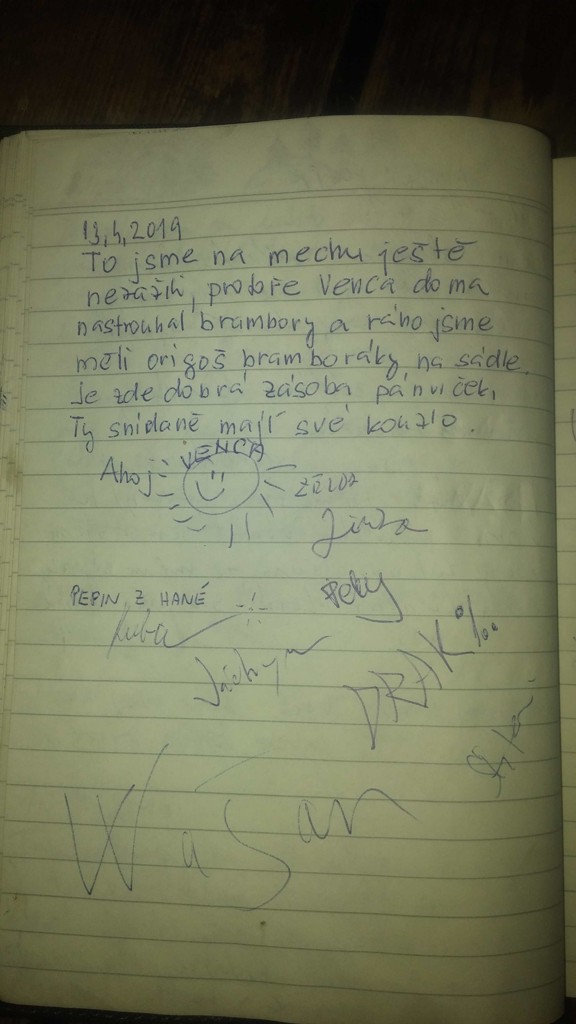 13.4.2019
To jsme na mechu ještě
nezažili, protože Venca doma
nastrouhal brambory a ráno jsme
měli origoš bramboráky na sádle.
Je zde dobrá zásoba pánviček.
Ty snídaně mají své kouzlo.
Ahoj VENCA
Jinza
PEPIN Z HANÉ
Pety
Kuba
Jáchym
DRAK‰
Wašan